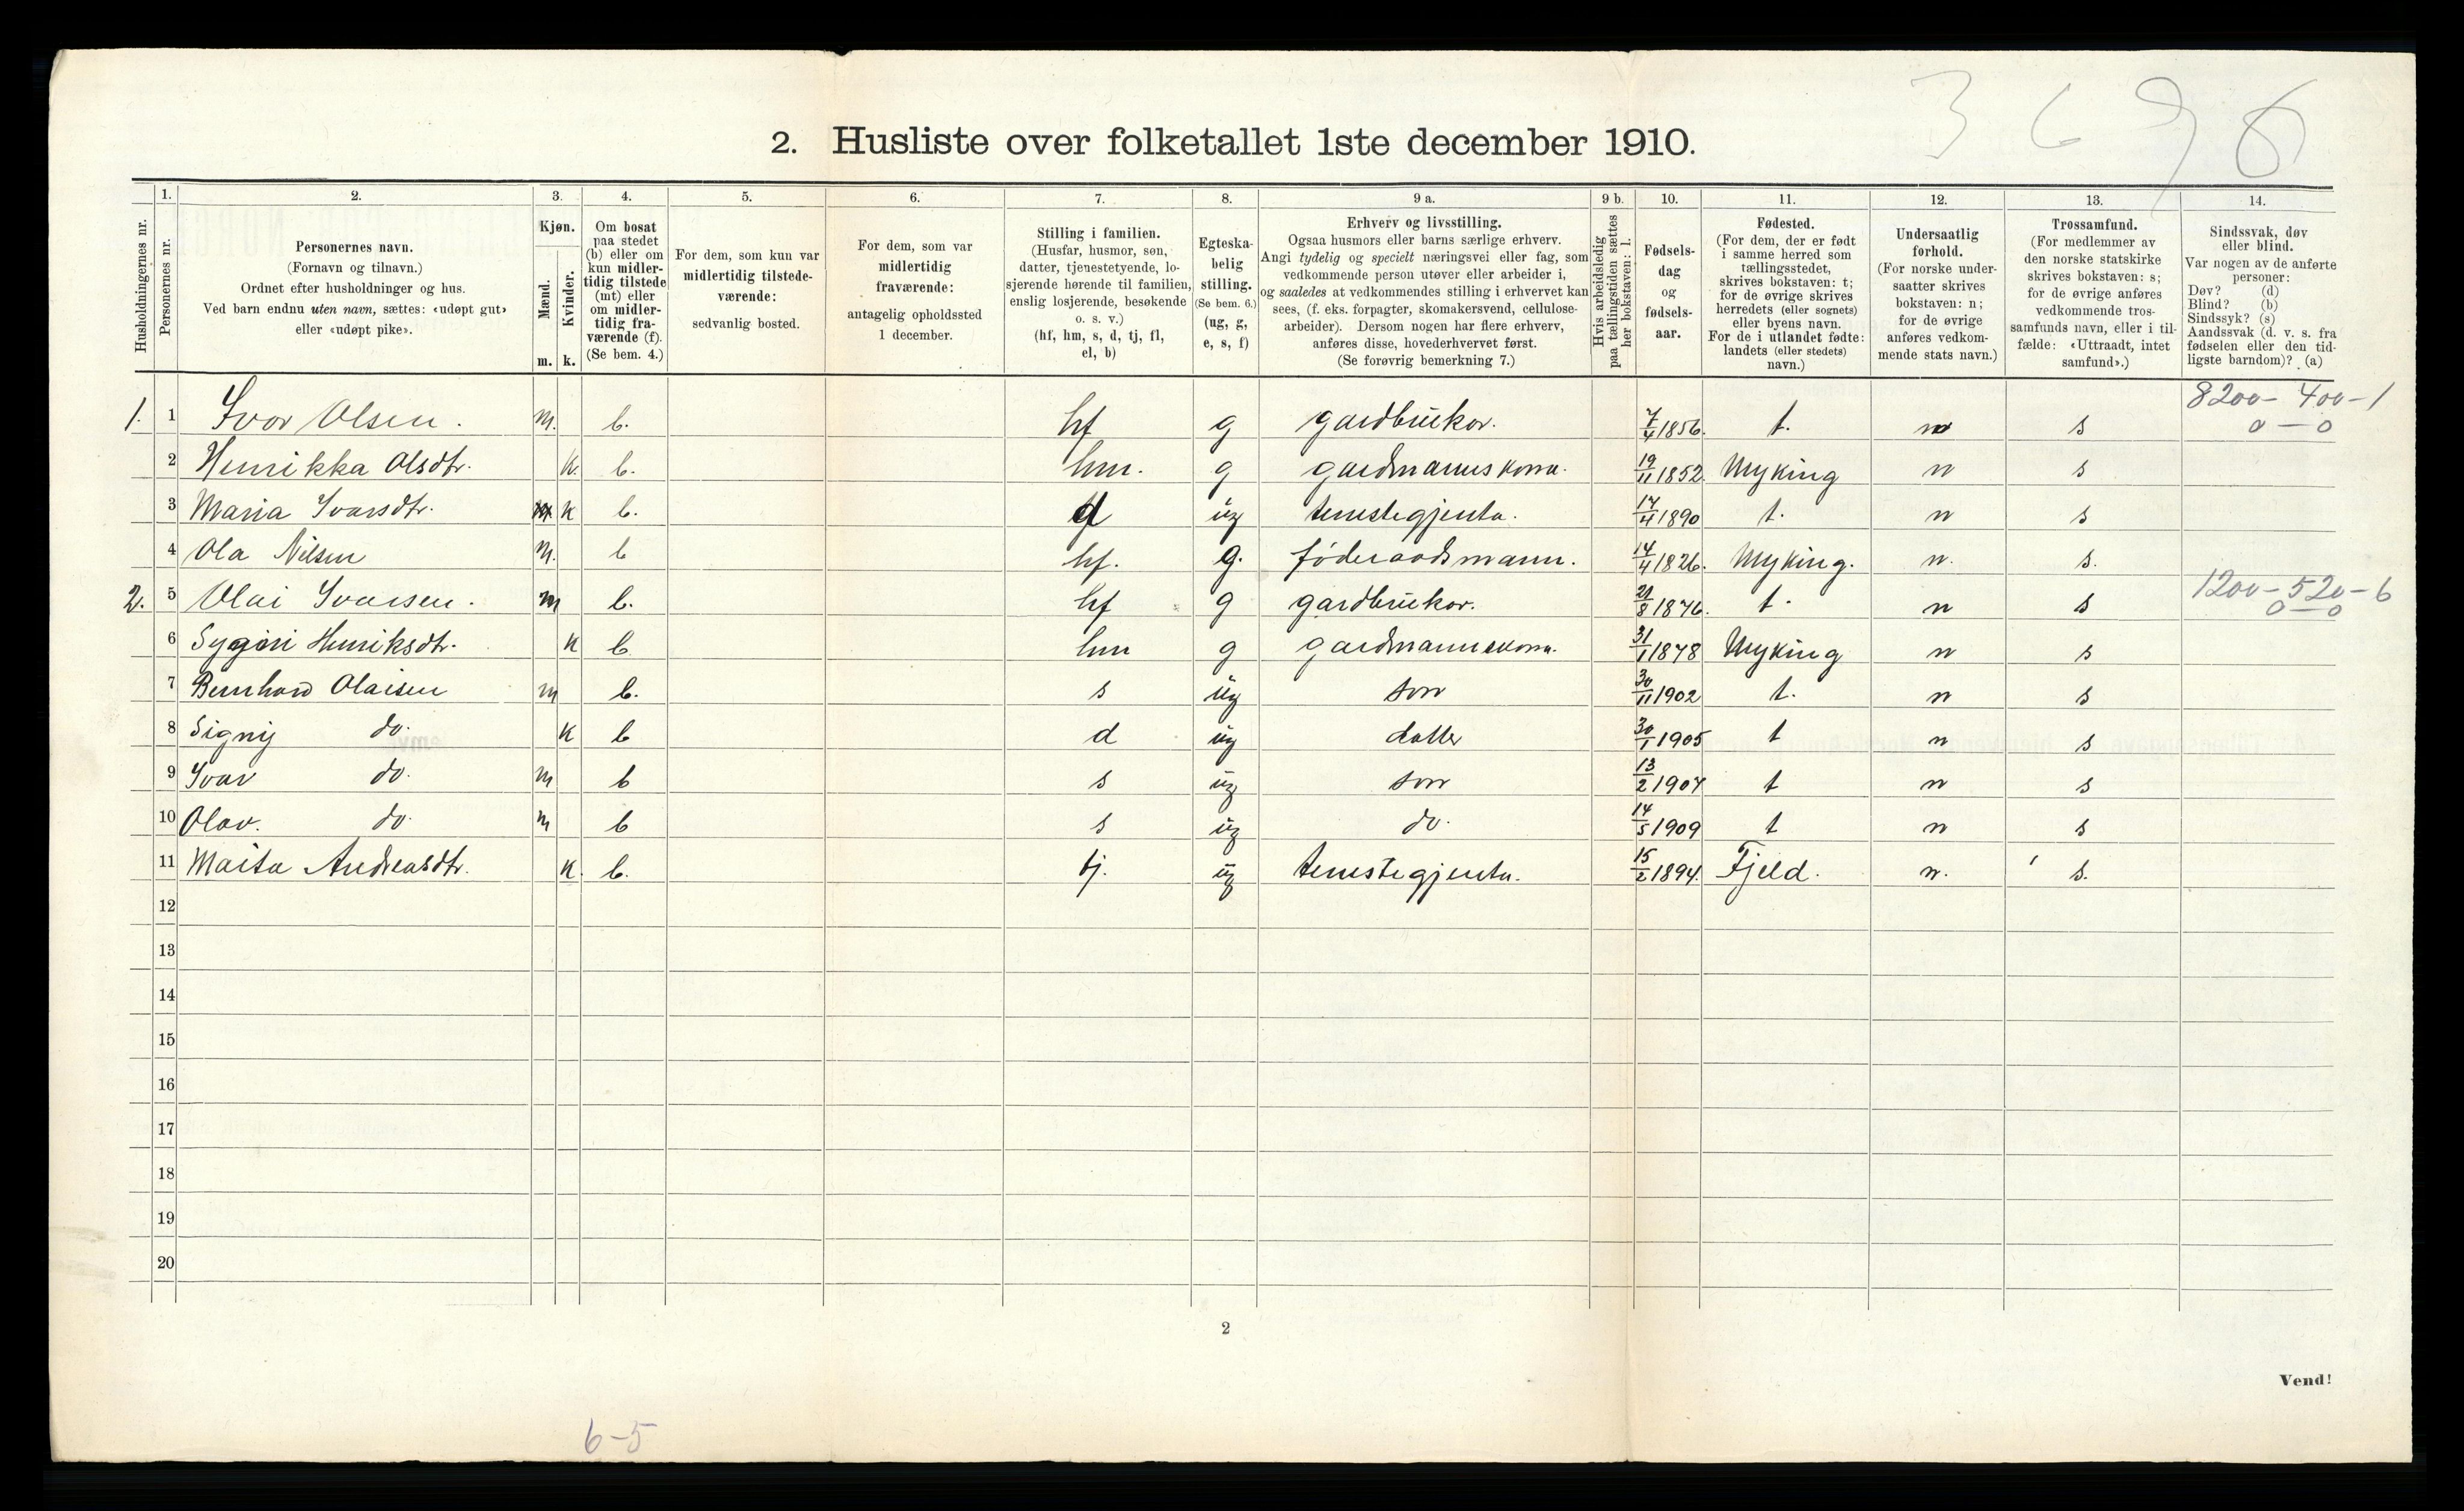 3 6 98
2. Husliste over folketallet 1ste december 1910.
Husholdningernes nr.
1. Personernes nr.
2. Personernes navn. (Fornavn og tilnavn.) Ordnet efter husholdninger og hus. Ved barn endnu uten navn, sættes: «udøpt gut» eller «udøpt pike».
3. Kjøn. Mænd. m. Kvinder. k.
4. Om bosat paa stedet (b) eller om kun midlertidig tilstede (mt) eller om midlertidig fraværende (f). (Se bem. 4.)
5. For dem, som kun var midlertidig tilstedeværende: sedvanlig bosted.
6. For dem, som var midlertidig fraværende: antagelig opholdssted 1 december.
7. Stilling i familien. (Husfar, husmor, søn, datter, tjenestetyende, losjerende hørende til familien, enslig losjerende, besøkende o. s. v.) (hf, hm, s, d, tj, fl, el, b)
8. Egteskabelig stilling. (Se bem. 6.) (ug, g, e, s, f)
9 a. Erhverv og livsstilling. Ogsaa husmors eller barns særlige erhverv. Angi tydelig og specielt næringsvei eller fag, som vedkommende person utøver eller arbeider i, og saaledes at vedkommendes stilling i erhvervet kan sees, (f. eks. forpagter, skomakersvend, cellulosearbeider). Dersom nogen har flere erhverv, anføres disse, hovederhvervet først. (Se forøvrig bemerkning 7.)
9 b. Hvis arbeidsledig paa tællingstiden sættes her bokstaven: l.
10. Fødselsdag og fødselsaar.
11. Fødested. (For dem, der er født i samme herred som tællingsstedet, skrives bokstaven: t; for de øvrige skrives herredets (eller sognets) eller byens navn. For de i utlandet fødte: landets (eller stedets) navn.)
12. Undersaatlig forhold. (For norske undersaatter skrives bokstaven: n; for de øvrige anføres vedkommende stats navn.)
13. Trossamfund. (For medlemmer av den norske statskirke skrives bokstaven: s; for de øvrige anføres vedkommende trossamfunds navn, eller i tilfælde: «Uttraadt, intet samfund».)
14. Sindssvak, døv eller blind. Var nogen av de anførte personer: Døv? (d) Blind? (b) Sindssyk? (s) Aandssvak (d. v. s. fra fødselen eller den tidligste barndom)? (a)
8200 - 400 - 1
1. 1 Ivor Olsen. m. b. hf g gardbrukar. 7/4 1856. t. n s 0 - 0
2 Henrikka Olsdtr. k. b. hm. g gardmannskona. 19/11 1852. Myking n s
3 Maria Ivarsdtr. k b. d ug tenestegjenta. 17/4 1890 t. n s
4 Ola Nilsen m. b hf. g. föderaadsmann. 14/4 1826. Myking. n. s.
1200 - 520 - 6
2. 5 Olai Ivarsen. m b. hf g gardbrukar. 21/8 1876. t. n s 0 - 0
6 Sygni Henriksdtr. k b hm g gardmannskona. 31/1 1878 Myking n s
7 Bernhard Olaisen m b. s ug son 30/11 1902 t. n s
8 Signy do. k b d ug dotter 30/1 1905 t n s
9 Ivar do. m b s ug son 13/2 1907 t n s
10 Olav. do. m b s ug do. 14/5 1909 t n s
11 Marta Andreasdtr. k. b. tj. ug tenestegjenta. 15/2 1894. Fjeld. n. s.
12
13
14
15
16
17
18
19
20
2
Vend!
6-5